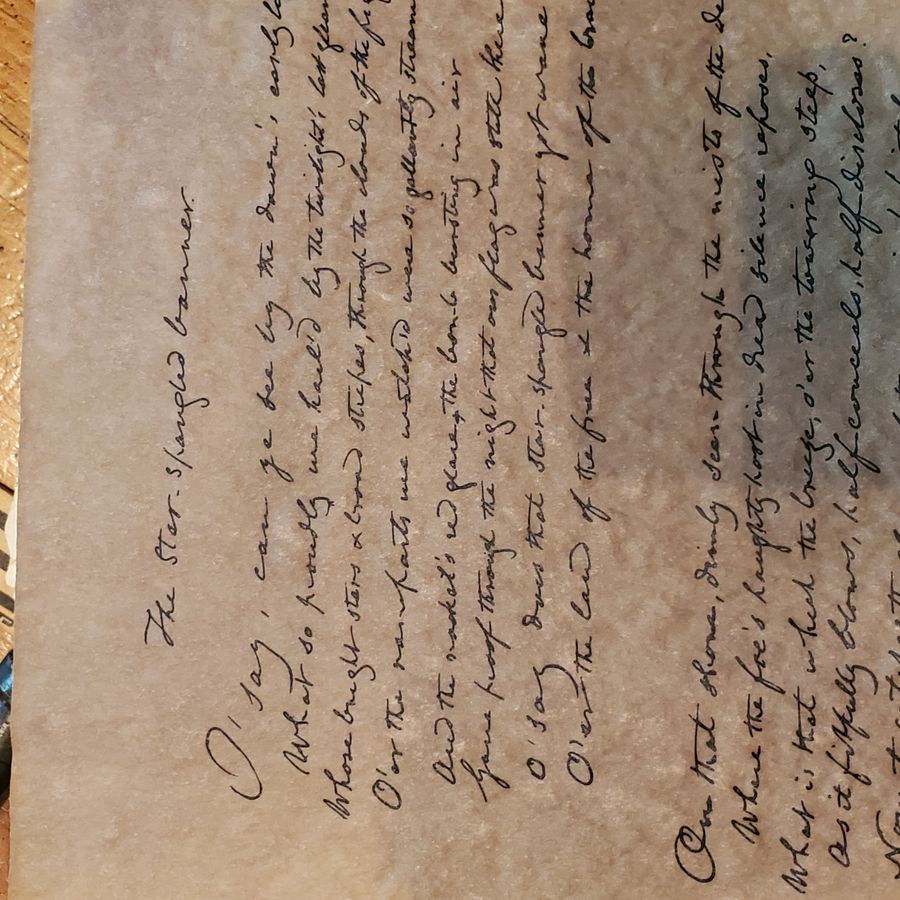 The Star-Spangled banner.
O'say, can ye see by the dawn's early
What so proudly we hail'd by the twilight's last
Whose bright stars & broad stripes, through the clouds of the
O'er the ramparts we watch'd were so gallantly
And the rocket's red glare, the bomb bursting in air
Gave proof through the night that our flag was still there
O'say does that star-spangled banner yet wave
O'er the land of the free & the home of the
On that shore, dimly seen through the mists of the
Where the foe's haughty host in dread silence reposes,
What is that which the breeze, o'er the towering steep,
As it fitfully blows, half conceals, half discloses?